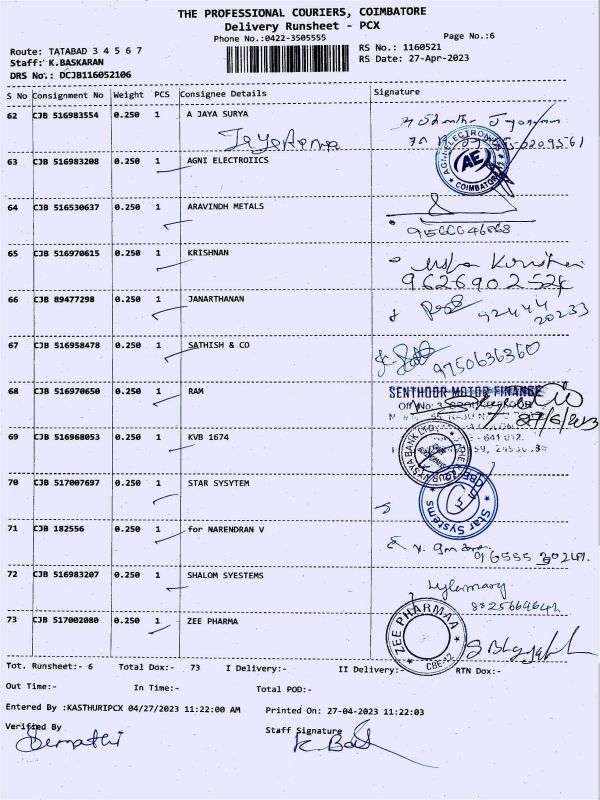 THE PROFESSIONAL COURIERS, COIMBATORE
Delivery Runsheet - PCX
Phone No.:0422-3505555
Page No.:6
Route: TATABAD 3 4 5 6 7
RS No.: 1160521
Staff: K.BASKARAN
RS Date: 27-Apr-2023
DRS No.: DCJB116052106
S No Consignment No Weight PCS Consignee Details Signature
62 CJB 516983554 0.250 1 A JAYA SURYA
63 CJB 516983208 0.250 1 AGNI ELECTROIICS
AGNI ELECTRONICS AE COIMBATORE
64 CJB 516530637 0.250 1 ARAVINDH METALS
65 CJB 516970615 0.250 1 KRISHNAN
66 CJB 89477298 0.250 1 JANARTHANAN
92444
20233
67 CJB 516958478 0.250 1 SATHISH & CO
9750636360
68 CJB 516970650 0.250 1 RAM
SENTHOOR MOTOR FINANCE
69 CJB 516968053 0.250 1 KVB 1674
70 CJB 517007697 0.250 1 STAR SYSYTEM
Star Systems CBE
71 CJB 182556 0.250 1 for NARENDRAN V
72 CJB 516983207 0.250 1 SHALOM SYESTEMS
73 CJB 517002080 0.250 1 ZEE PHARMA
ZEE PHARMAA CBE-12
Tot. Runsheet:- 6 Total Dox:- 73 I Delivery:- II Delivery:- RTN Dox:-
Out Time:- In Time:- Total POD:-
Entered By :KASTHURIPCX 04/27/2023 11:22:00 AM Printed On: 27-04-2023 11:22:03
Verified By Staff Signature